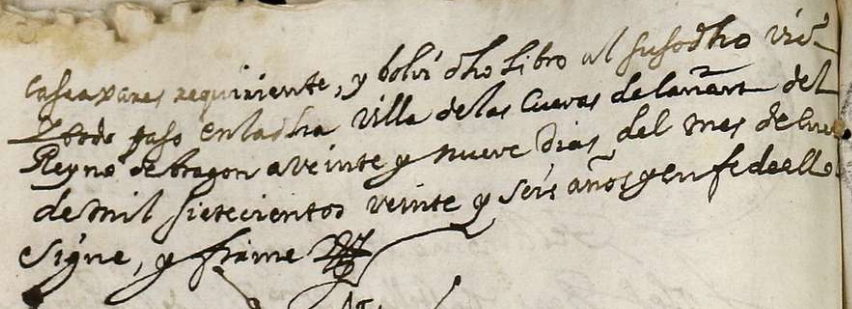 requiriente, y bolvi dho Libro al susodho
y todo paso en la dha Villa de las Cuevas de Cañart del
Reyno de Aragon a veinte y nueve Dias del mes de
de mil sietecientos veinte y seis años y en fe de ello
Signe, y firme